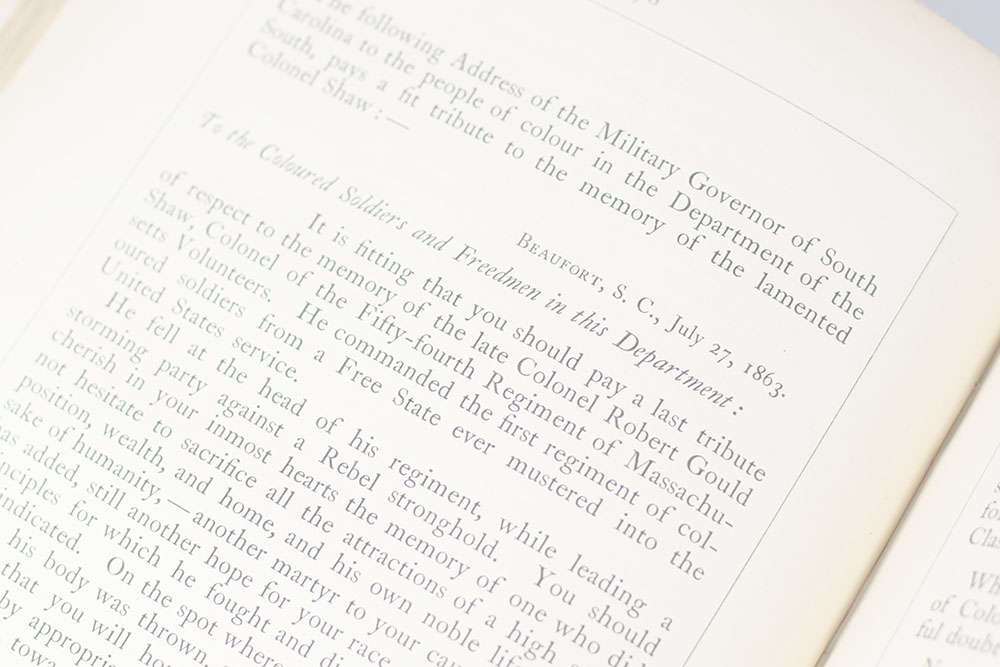 he following Address of the Military Governor of South
Carolina to the people of colour in the Department of the
South, pays a fit tribute to the memory of the lamented
Colonel Shaw:—
BEAUFORT, S. C., July 27, 1863.
To the Coloured Soldiers and Freedmen in this Department:
It is fitting that you should pay a last tribute
of respect to the memory of the late Colonel Robert Gould
Shaw, Colonel of the Fifty-fourth Regiment of Massachu-
setts Volunteers. He commanded the first regiment of col-
oured soldiers from a Free State ever mustered into the
United States service.
He fell at the head of his regiment, while leading a
storming party against a Rebel stronghold. You should
cherish in your inmost hearts the memory of one who did
not hesitate to sacrifice all the attractions of a high
position, wealth, and home, and his own noble life
sake of humanity,—another martyr to your cau
as added, still another hope for your race
nciples for which he fought and di
indicated. On the spot where
his body was thrown,
that you will ho
by appropri
towa
fo
Clas
Wh
of Colo
ful doub